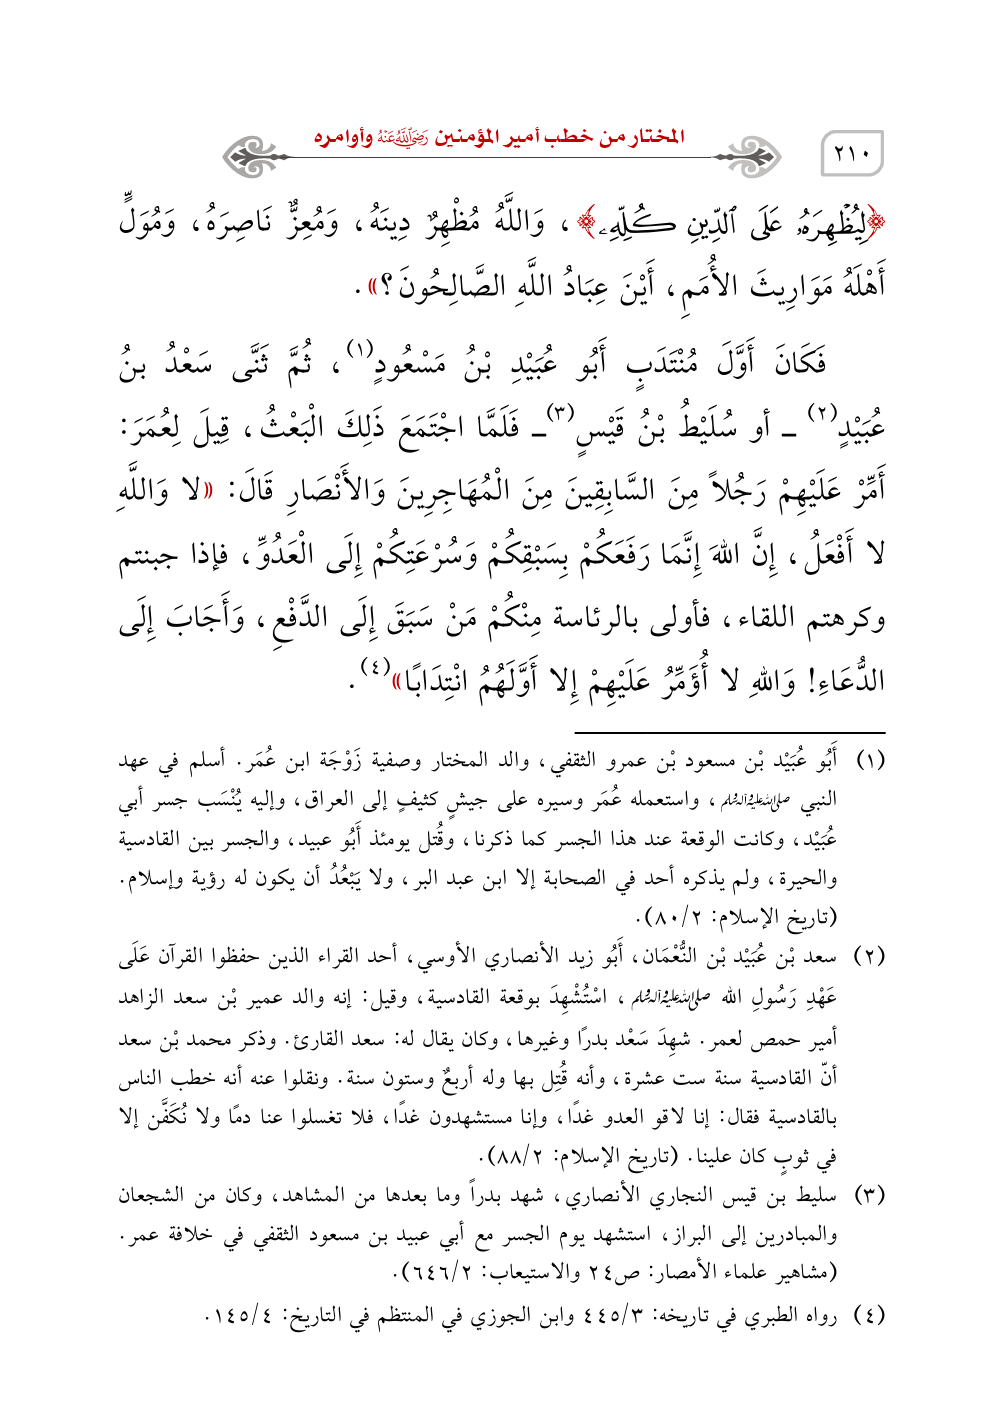 المختار من خطب أمير المؤمنين رَضِيَ اللَّهُ عَنْهُ وأوامره
٢١٠
﴿لِيُظْهِرَهُۥ عَلَى ٱلدِّينِ كُلِّهِۦ﴾، وَاللَّهُ مُظْهِرٌ دِينَهُ، وَمُعِزٌّ نَاصِرَهُ، وَمُوَلٍّ
أَهْلَهُ مَوَارِيثَ الأُمَمِ، أَيْنَ عِبَادُ اللَّهِ الصَّالِحُونَ؟».
فَكَانَ أَوَّلَ مُنْتَدَبٍ أَبُو عُبَيْدِ بْنُ مَسْعُودٍ(١)، ثُمَّ ثَنَّى سَعْدُ بنُ
عُبَيْدٍ(٢) ـ أو سُلَيْطُ بْنُ قَيْسٍ(٣)ـ فَلَمَّا اجْتَمَعَ ذَلِكَ الْبَعْثُ، قِيلَ لِعُمَرَ:
أَمِّرْ عَلَيْهِمْ رَجُلاً مِنَ السَّابِقِينَ مِنَ الْمُهَاجِرِينَ وَالأَنْصَارِ قَالَ: «لا وَاللَّهِ
لا أَفْعَلُ، إِنَّ اللهَ إِنَّمَا رَفَعَكُمْ بِسَبْقِكُمْ وَسُرْعَتِكُمْ إِلَى الْعَدُوِّ، فإذا جبنتم
وكرهتم اللقاء، فأولى بالرئاسة مِنْكُمْ مَنْ سَبَقَ إِلَى الدَّفْعِ، وَأَجَابَ إِلَى
الدُّعَاءِ! وَاللهِ لا أُؤَمِّرُ عَلَيْهِمْ إِلا أَوَّلَهُمُ انْتِدَابًا»(٤).
(١) أَبُو عُبَيْد بْن مسعود بْن عمرو الثقفي، والد المختار وصفية زَوْجَة ابن عُمَر. أسلم في عهد
النبي صَلَّى اللهُ عَلَيْهِ وَآلِهِ وَسَلَّمَ، واستعمله عُمَر وسيره على جيشٍ كثيفٍ إلى العراق، وإليه يُنْسَب جسر أبي
عُبَيْد، وكانت الوقعة عند هذا الجسر كما ذكرنا، وقُتل يومئذ أَبُو عبيد، والجسر بين القادسية
والحيرة، ولم يذكره أحد في الصحابة إلا ابن عبد البر، ولا يَبْعُدُ أن يكون له رؤية وإسلام.
(تاريخ الإسلام: ٨٠/٢).
(٢) سعد بْن عُبَيْد بْن النُّعْمَان، أَبُو زيد الأنصاري الأوسي، أحد القراء الذين حفظوا القرآن عَلَى
عَهْدِ رَسُولِ الله صَلَّى اللهُ عَلَيْهِ وَآلِهِ وَسَلَّمَ، اسْتُشْهِدَ بوقعة القادسية، وقيل: إنه والد عمير بْن سعد الزاهد
أمير حمص لعمر. شهِدَ سَعْد بدرًا وغيرها، وكان يقال له: سعد القارئ. وذكر محمد بْن سعد
أنّ القادسية سنة ست عشرة، وأنه قُتِل بها وله أربعٌ وستون سنة. ونقلوا عنه أنه خطب الناس
بالقادسية فقال: إنا لاقو العدو غدًا، وإنا مستشهدون غدًا، فلا تغسلوا عنا دمًا ولا نُكَفَّن إلا
في ثوبٍ كان علينا. (تاريخ الإسلام: ٨٨/٢).
(٣) سليط بن قيس النجاري الأنصاري، شهد بدراً وما بعدها من المشاهد، وكان من الشجعان
والمبادرين إلى البراز، استشهد يوم الجسر مع أبي عبيد بن مسعود الثقفي في خلافة عمر.
(مشاهير علماء الأمصار: ص٢٤ والاستيعاب: ٦٤٦/٢).
(٤) رواه الطبري في تاريخه: ٤٤٥/٣ وابن الجوزي في المنتظم في التاريخ: ١٤٥/٤.